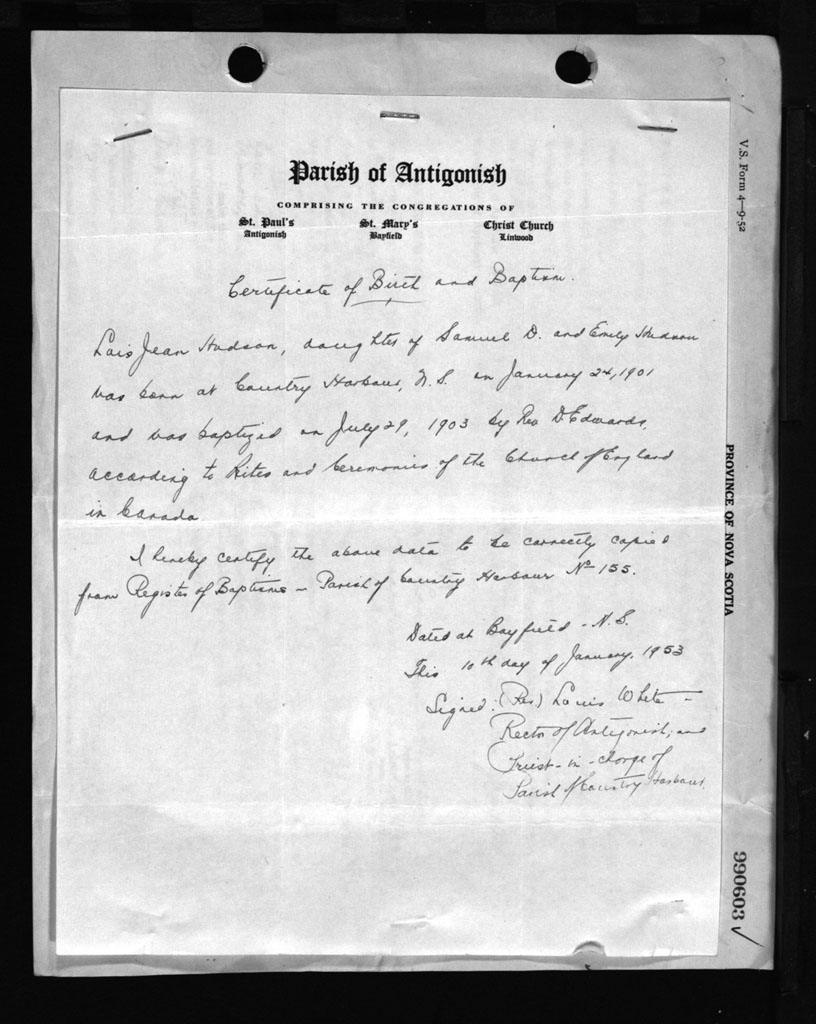 Parish of Antigonish
COMPRISING THE CONGREGATIONS OF
St. Paul's St. Mary's Christ Church
Antigonish Bayfield Linwood
Certificate of Birth and Baptism.
Lois Jean Hudson, daughter of Samuel D. and Emily Hudson
was born at Country Harbour, N.S. on January 24, 1901
and was baptized on July 29, 1903 by Rev D. Edwards,
according to Rites and Ceremonies of the Church of England
in Canada
I hereby certify the above data to be correctly copied
from Register of Baptisms – Parish of Country Harbour No 155.
Dated at Bayfield - N.S.
This 10th day of January, 1953
Signed: (Rev) Louis White –
Rector of Antigonish, and
Priest-in-charge of
Parish of Country Harbour.
V.S. Form 4—9-52
PROVINCE OF NOVA SCOTIA
990603 ✓